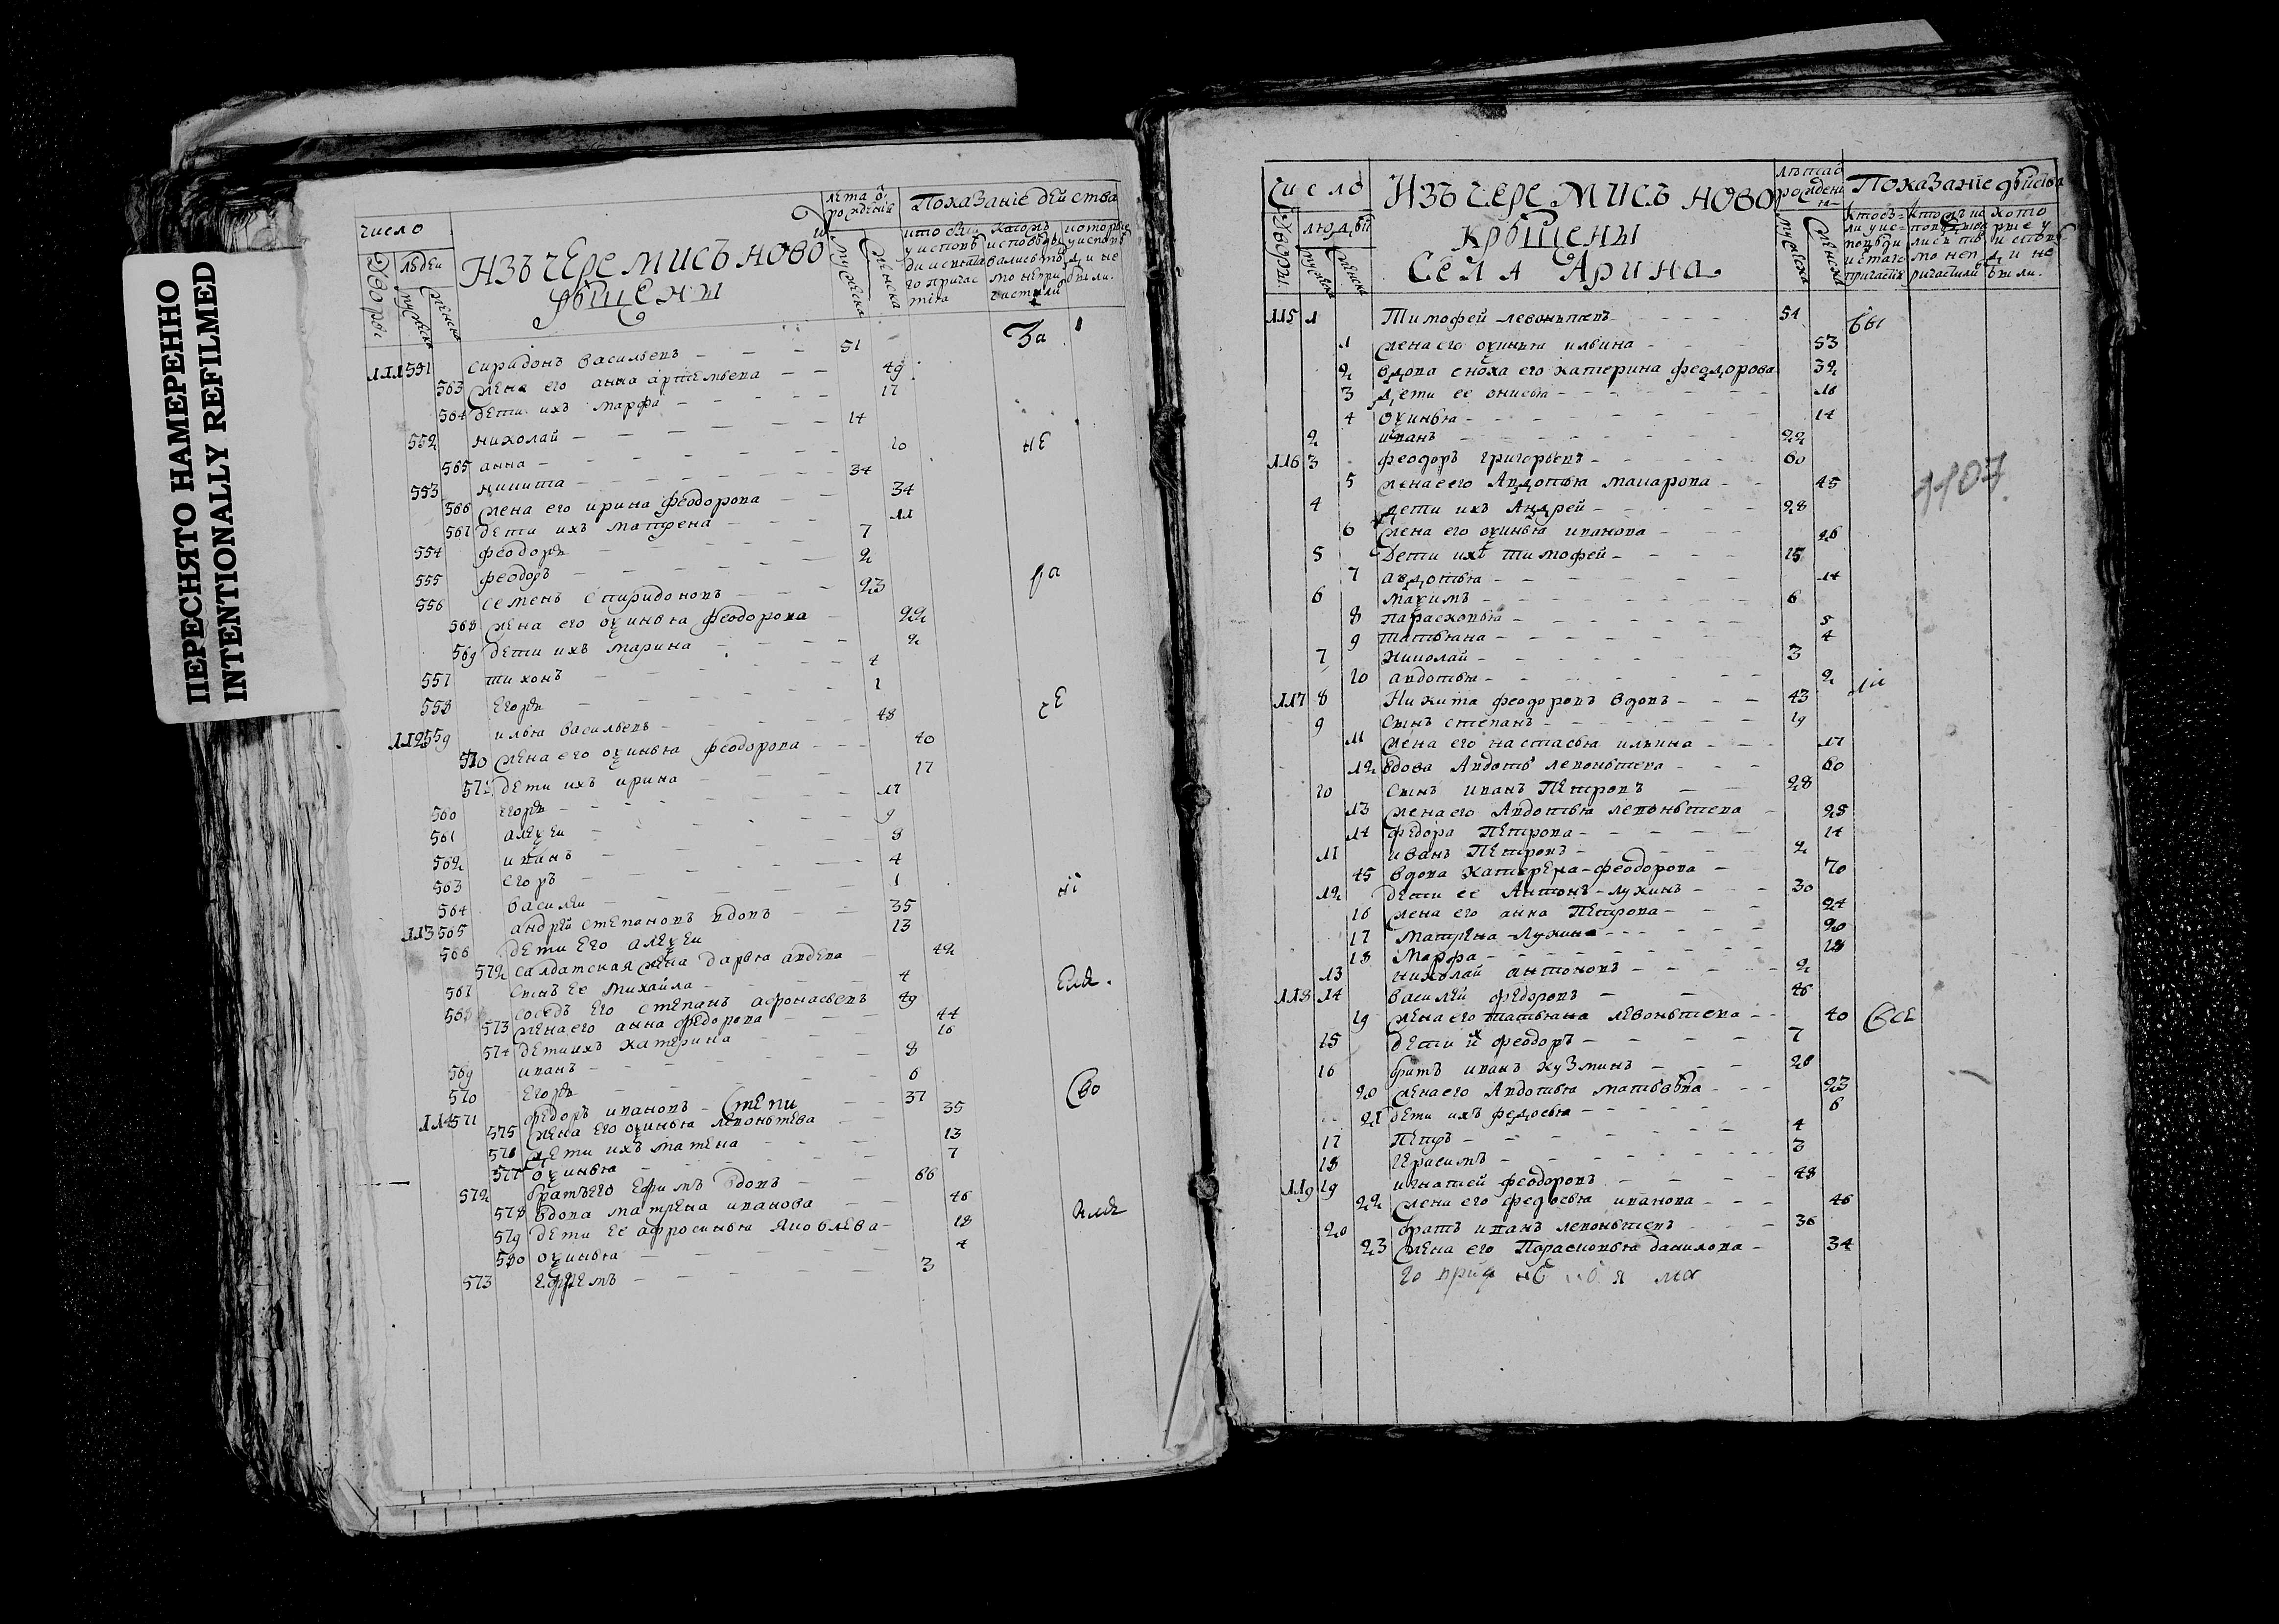 ПЕРЕСНЯТО НАМЕРЕННО
INTENTIONALLY REFILMED
число
Дворы
людеи
мужеска
женска
Изъ черемисъ ново
крщены
лета о рождения
мужеска
женска
Показанiе действа
111 551 спиридонъ васильевъ 51
563 жена его анна артемьева 49
564 дети ихъ марфа 17
552 николай 14
565 анна 10
553 никита 34
566 жена его ирина феодорова 34
567 дети ихъ матрена 11
554 феодоръ 7
555 феодоръ 2
556 семенъ спиридоновъ 23
568 жена его оѯинья феодорова 22
569 дети ихъ марина 2
557 тихонъ 4
558 егоръ 1
112 559 илья васильевъ 48
570 жена его оѯинья феодорова 40
571 дети ихъ ирина 17
560 егоръ 11
561 алеѯеи 9
562 иванъ 8
563 егоръ 4
564 василеи 1
113 565 андрей степановъ вдовъ 35
566 дети его алеѯеи 13
572 салдатская жена дарья авдева 42
567 сынъ ее михайла 4
568 соседъ его степанъ афонасьевъ 49
573 жена его анна федорова 44
574 дети ихъ катерина 16
569 иванъ 8
570 егоръ 6
114 571 федоръ ивановъ 37
575 жена его оѯинья левонтева 35
576 дети ихъ матена 13
577 оѯинья 7
572 братъ его ефимъ вдовъ 66
578 вдова матрена иванова 46
579 дети ее афросинья яковлева 18
580 оѯинья 4
573 ефремъ 3
За
не
ра
че
нi
ния
(во
числѣ
Дворы
людѣй
мужеска
женска
Изъ черемисъ ново
крщены
села Арина
лѣта о рождени
мужеска
женска
Показанiе дѣйства
115 1 Тимофей левонтьевъ 54
1 жена его оѯинья ильина 53
2 вдова сноха его катерина феодорова 32
3 дети ее онисья 18
4 оѯинья 14
2 иванъ 22
116 3 феодоръ григорьевъ 60
5 жена его Авдотья макарова 45
4 дети ихъ Андрей 28
6 жена его оѯинья иванова 26
5 Дети ихъ тимофей 15
7 авдотья 14
6 маѯимъ 6
8 парасковья 5
9 татьяна 4
7 николай 3
10 авдотья 2
117 8 Никита феодоровъ вдовъ 43
9 сынъ степанъ 19
11 жена его настасья ильина 17
12 вдова Авдоть левонтьева 60
10 сынъ иванъ Петровъ 28
13 жена его Авдотья левонтьева 25
14 федора Петрова 14
11 иванъ Петровъ 2
15 вдова катерена феодорова 70
12 дети ее Антонъ лукинъ 30
16 жена его анна Петрова 24
17 матрена лукина 20
18 марфа 18
13 николай антоновъ 2
118 14 василей федоровъ 46
19 жена его татьяна левонтьева 40
15 дети их феодоръ 7
16 братъ иванъ кузминъ 26
20 жена его Авдотья матвѣвна 23
21 дети ихъ федосья 6
17 Петръ 4
18 герасимъ 3
119 19 игнатей феодоровъ 48
22 жена его федосья иванова 46
20 братъ иванъ левонтьевъ 36
23 жена его Парасковья данилова 34
бы
1107
ли
(все